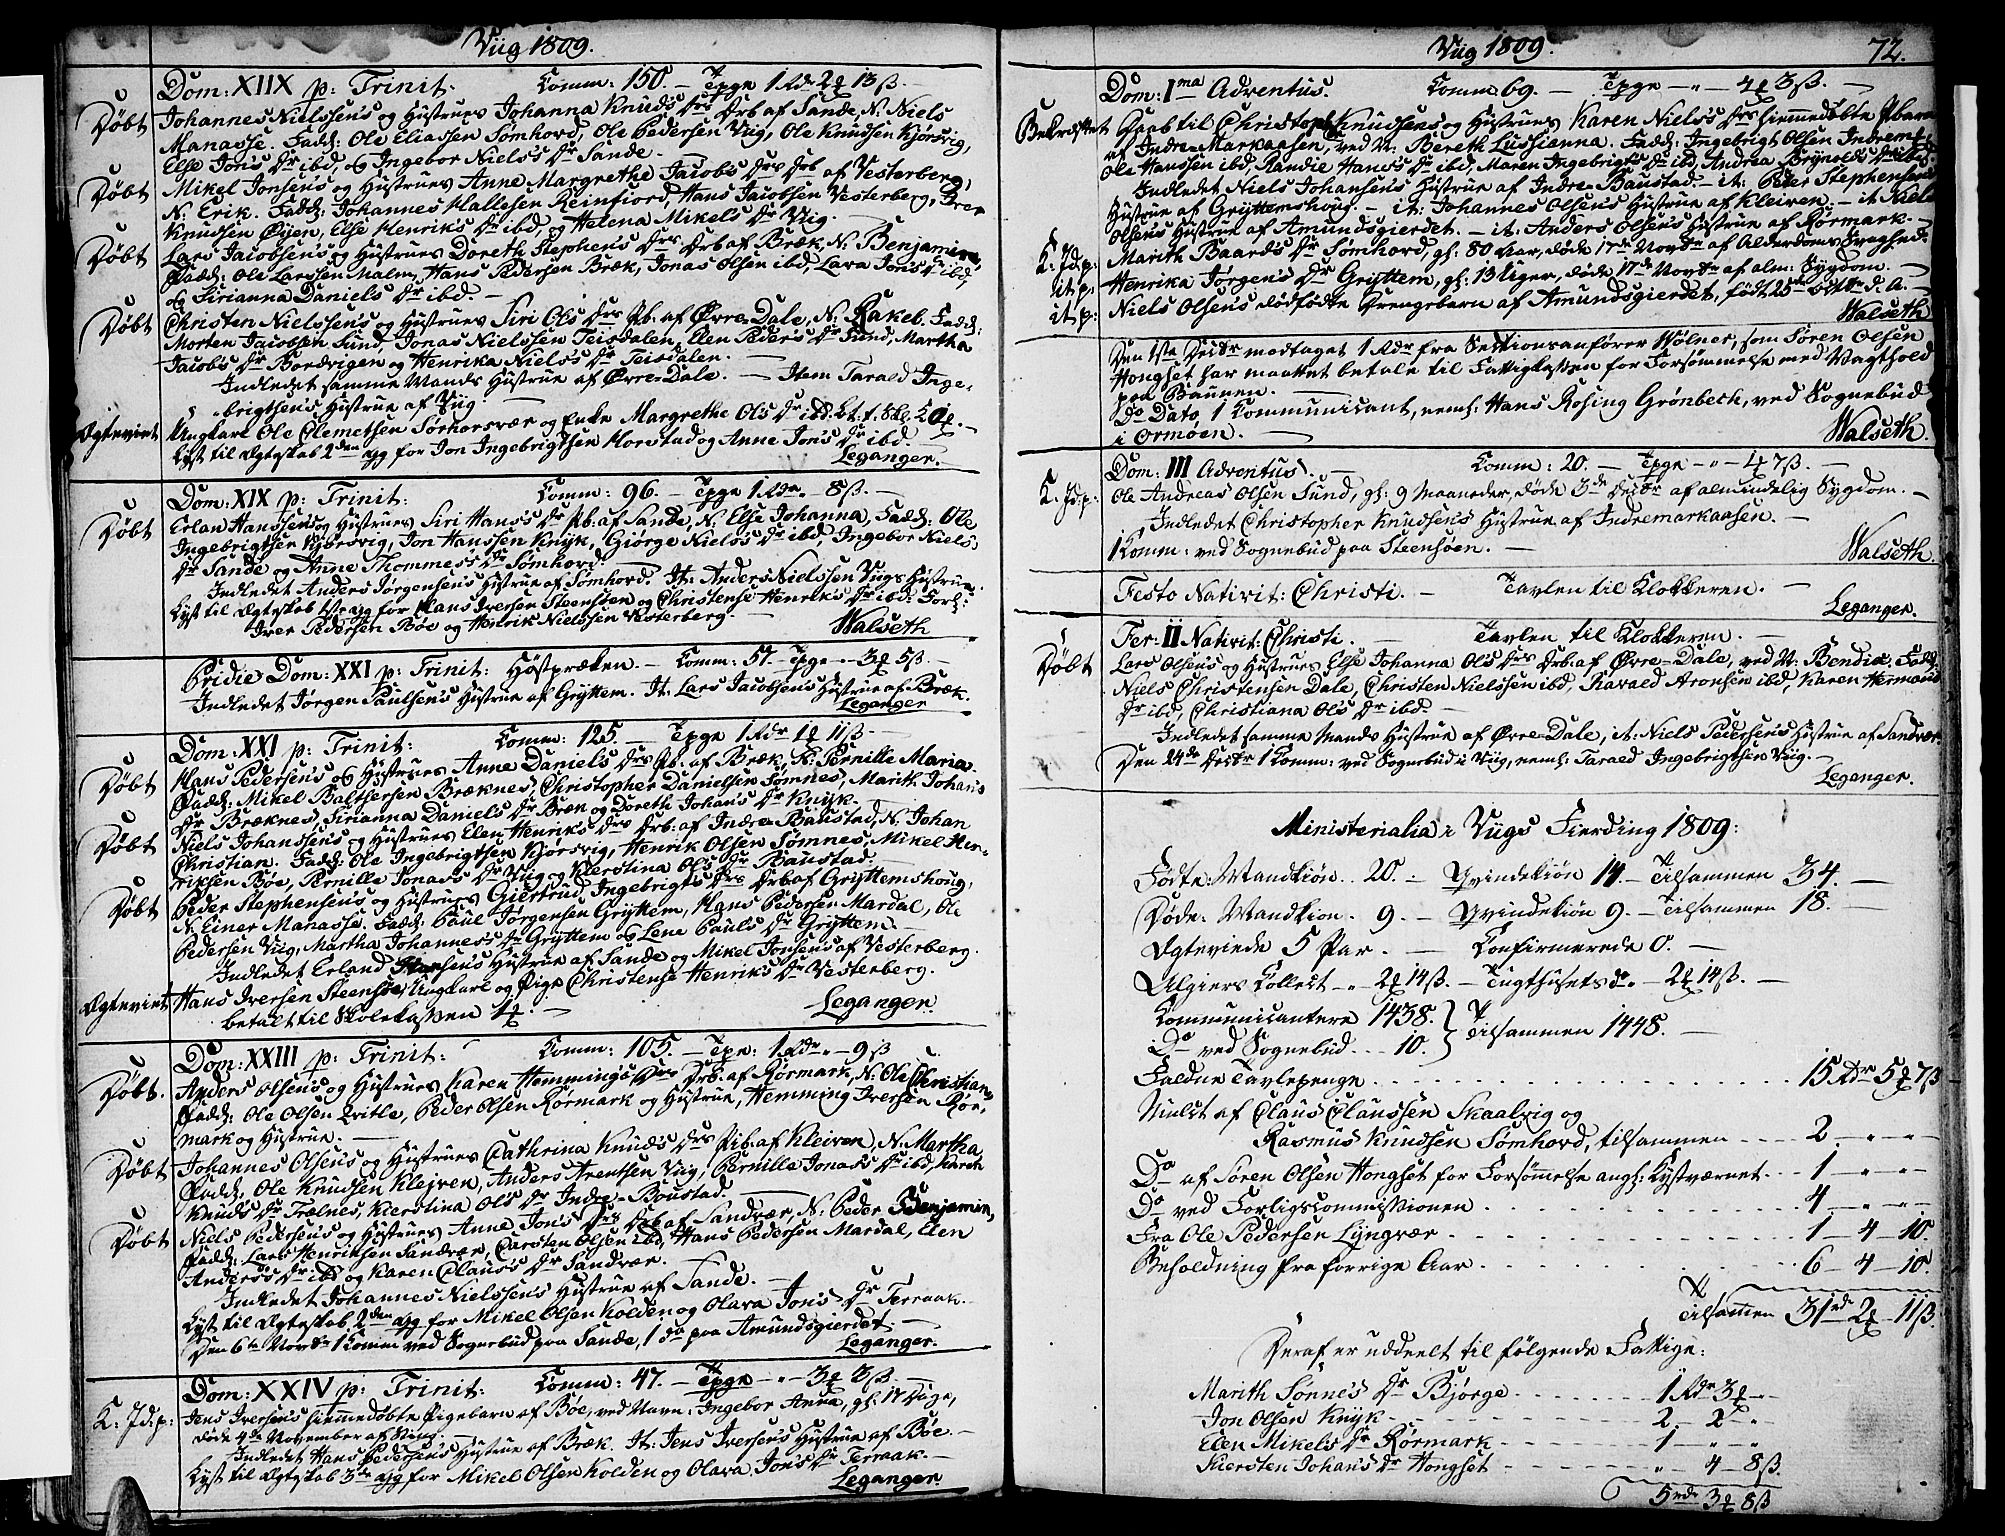 Viig 1809.
Dom: XIIX p: Trinit. Comm: 150. — Tpge 1 Rdr 2 13 ß.
Døbt Johannes Nielssens og Hustrues Johanna Knuds Drs Drb af Sande, N: Niels
Manasse. Fadd: Ole Eliassen Sømhord, Ole Pedersen Viig, Ole Knudsen Kjörsvig,
Else Jons Dr ibd, og Ingebor Niels's Dr Sande —
Døbt Mikel Jonsens og Hustrues Anne Margrethe Jacobs Drs Drb af Vesterberg,
N: Erik. Fadd: Johannes Hallesen Reinfiord, Hans Jacobsen Vesterberg, Iver
Knudsen Øyen, Else Henriks Dr ibd, og Helena Mikels Dr Viig.
Døbt Lars Jacobsens og Hustrues Doreth Stephens Drs Drb af Bræk, N: Benjamin
Fadd: Ole Larssen Malm, Hans Pedersen Bræk, Jonas Olsen ibd, Lava Jons Dr ibd,
og Sirianna Daniels Dr ibd. —
Døbt Christen Nielssens og Hustrues Siri Ols Drs Pb. af Øvre-Dale, N: Rakel. Fadd:
Morten Jacobsen Sund, Jonas Nielssen Teisdalen, Elen Peders Dr Sund, Martha
Jacobs Dr Bondvigen og Henrika Niels's Dr Teisdalen.
Indledet samme Mands Hustrue af Øvre-Dale. — Item Tarald Inge-
brigtsens Hustrue af Viig —
Ægteviet Ungkarl Ole Clemetsen Sørhorsvær og Enke Margrethe Ols Dr ibd. bt: t: Skl:
Lyst til Ægteskab 2den gg for Jon Ingebrigtsen Horstad og Anne Jons Dr ibd.
Leganger.
Dom: XIX p: Trinit: Comm: 96. — Tpge 1 Rdr „ 8 ß. —
Døbt Erlan Hanssens og Hustrues Siri Hans's Dr Pb: af Sande, N: Else Johanna, Fadd: Ole
Ingebrigtsen Kjörsvig, Jon Hanssen Knyk, Giörge Niels's Dr ibd, Ingebor Niels
Dr Sande og Anne Thommes's Dr Sømhord.
Indledet Anders Jørgensens Hustrue af Sømhord. It: Anders Nielssen Viigs Hustrue.
Lyst til Ægteskab 1ste gg for Hans Iversen Steensöen og Christense Henriks Dr ibd: Forl:
Iver Pedersen Bøe og Henrik Nielssen Vesterberg. —
Walseth
Pridie Dom: XXI p: Trinit: Høstpræken. — Comm: 57. Tpge „ 3 5 ß. —
Indledet Jørgen Paulsens Hustrue af Gryttem. It: Lars Jacobsens Hustrue af Bræk.
Leganger
Dom: XXI p: Trinit: Comm: 125. — Tpge 1 Rdr 1 11 ß. —
Døbt Hans Pedersens og Hustrues Anne Daniels Drs Pb: af Bræk, N: Pernille Maria.
Fadd: Mikel Balthersen Bræknes, Christopher Danielsen Sømnes, Marith Johans
Dr Bræknes, Sirianna Daniels Dr Bræk og Doreth Johans Dr Knyk.
Døbt Niels Johansens og Hustrues Elen Henriks Drs Drb: af Indre Baustad, N: Johan
Christian. Fadd: Ole Ingebrigtsen Kjörsvig, Henrik Olsen Sømnes, Mikel Hen-
riksen Bøe, Pernille Jonas's Dr Viig og Kierstina Ols Dr Baustad.
Døbt Peder Stephensens og Hustrues Giertrud Ingebrigts Drs Drb af Gryttemshoug,
N: Einer Manasse. Fadd: Paul Jørgensen Gryttem, Hans Pedersen Mardal, Ole
Pedersen Viig, Martha Johannes's Dr Gryttem og Lene Pauls Dr Gryttem —
Indledet Erland Hansens Hustrue af Sande og Mikel Jonsens af Vesterberg.
Ægteviet Hans Iversen Steensöe, Ungkarl og Pige Christense Henriks Dr Vesterberg.
betalt til Skolekassen 1
Leganger.
Dom: XXIII p: Trinit: Comm: 105. — Tpe: 1 Rdr „ 9 ß
Døbt. Anders Olsens og Hustrues Karen Hemmings Drs Drb. af Rörmark, N: Ole Christian
Fadd: Ole Olsen Qvitle, Peder Olsen Rörmark og Hustrue, Hemming Iversen Rör-
mark og Hustrue. —
Døbt Johannes Olsens og Hustrues Cathrina Knuds Drs Pib: af Kleiven, N: Martha
Fadd: Ole Knudsen Klejven, Anders Arentsen Viig, Pernille Jonas's Dr ibd, Karen
Knuds Dr Trælnes, Kierstina Ols Dr Indre-Boustad.
Døbt Niels Pedersens og Hustrues Anne Jons Drs Drb af Sandvær, N: Peder Benjamin,
Fadd: Lars Henriksen Sandvær, Carsten Olsen ibd, Hans Pedersen Mardal, Elen
Anders's Dr ibd og Karen Claus's Dr Sandvær.
Indledet Johannes Nielssens Hustrue af Sande. —
Lyst til Ægteskab 2den gg for Mikel Olsen Kolden og Olava Jons Dr Terraak.
Den 6te Novbr 1 Komm ved Sognebud paa Sande, 1 do paa Amundsgierdet. —
Leganger.
Dom: XXIV p: Trinit: Comm: 47. — Tpge „ 3 3 ß. —
K: Jd: p: Jens Iversens hiemmedøbte Pigebarn af Bøe, ved Navn: Ingebor Anna, gl: 17 Dage,
døde 4de November af —
Indledet Hans Pedersens Hustrue af Bræk. It: Jens Iversens Hustrue af Bøe. —
Lyst til Ægteskab 3die gg for Mikel Olsen Kolden og Olava Jons Dr Terraak. —
Leganger
Viig 1809. 72.
Dom: Ima Adventus. Comm 69. — Tpge „ 4 3 ß. —
Bekræftet Daab til Christoph: Knudsens og Hustrues Karen Niels's Drs hiemmedøbte Pbarn
af Indre-Markaasen, ved N: Bereth Lussianna. Fadd: Ingebrigt Olsen Indrem:,
Ole Hanssen ibd, Randie Hans's Dr ibd, Maren Ingebrigts Dr ibd, Andrea Brynolds Dr ibd.
Indledet Niels Johansens Hustrue af Indre-Baustad. — it: Peder Stephensens
Hustrue af Gryttemshoug. — it: Johannes Olsens Hustrue af Kleiven. — it Niels
Olsens Hustrue af Amundsgierdet. — it: Anders Olsens Hustrue af Rörmark. —
K: Jd: p: Marith Baards Dr Sømhord, gl: 80 Aar, døde 17de Novbr af Alderdoms Svaghed.
it p: Henrika Jørgens Dr Gryttem, gl: 13 Uger, døde 17de Novbr af alm: Sygdom. —
it p: Niels Olsens dødfødte Drengebarn af Amundsgierdet, født 25de Octbr d. A. —
Walseth
Den 1ste Decbr modtaget 1 Rdr fra Sectionsanfører Wølner, som Søren Olsen
Hongset har maattet betale til Fattigkassen for Forsømmelse med Vagthold
paa Baunen. —
Do Dato, 1 Communicant, neml: Hans Rosing Grønbech, ved Sognebud
i Ormøen. —
Walseth.
Dom: III Adventus. — Comm: 20. — Tpge „ 4 7 ß. —
K: Jd: p: Ole Andreas Olsen Sund, gl: 9 Maaneder, døde 3de Decbr af almindelig Sygdom. —
Indledet Christopher Knudsens Hustrue af Indremarkaasen. —
1 Komm: ved Sognebud paa Steensöen. —
Walseth.
Festo Nativit: Christi. — Tavlen til Klokkeren. —
Leganger.
Fer: II Nativit: Christi. — Tavlen til Klokkeren. —
Døbt Lars Olsens og Hustrues Else Johanna Ols Drs Drb: af Øvre-Dale, ved N: Bendix. Fadd:
Niels Christensen Dale, Christen Nielssen ibd, Harald Aronsen ibd, Karen Hermans
Dr ibd, Christiana Ols Dr ibd. —
Indledet samme Mands Hustrue af Øvre-Dale, it: Niels Pedersens Hustrue af Sandvær.
Den 24de Decbr 1 Komm: ved Sognebud i Viig, neml: Tarald Ingebrigtsen Viig. —
Leganger.
Ministerialia i Viigs Fierding 1809:
Fødte: Mandkiön .. 20. — Qvindekiön 14. — Tilsammen 34. —
Døde: Mandkiön . 9. — Qvindekiön 9. — Tilsammen 18. —
Ægteviede 5 Par. — Confirmerede 0. —
Algiers Collect „ 2 14 ß. — Tugthusets do „ 2 14 ß. —
Communicantere 1438. } Tilsammen 1448. —
Do ved Sognebud ... 10.
Faldne Tavlepenge . . . . 15 Rdr 5 7 ß
Mulct af Claus Claussen Skaalvig og
Rasmus Knudsen Sømhord, tilsammen ... 2 „ „
Do af Søren Olsen Hongset for Forsømmelse angl: Kystværnet ... 1 „ „
Do ved Forligscommissionen . . . 4 „ „
Fra Ole Pedersen Lyngvær . . . 1 - 4 - 10.
Beholdning fra forrige Aar . . . 6 - 4 - 10.
Tilsammen 31 rdr 2 11 ß.
Deraf er uddeelt til følgende Fattige:
Marith Sonne's Dr Bjørge ... 1 Rdr 3 „
Jon Olsen Knyk ... 2 - 2 „
Elen Mikels Dr Rörmark ... 1 „ „
Kiersten Johans Dr Hongset ... „ 4 - 8 ß.
5 rdr 3 8 ß